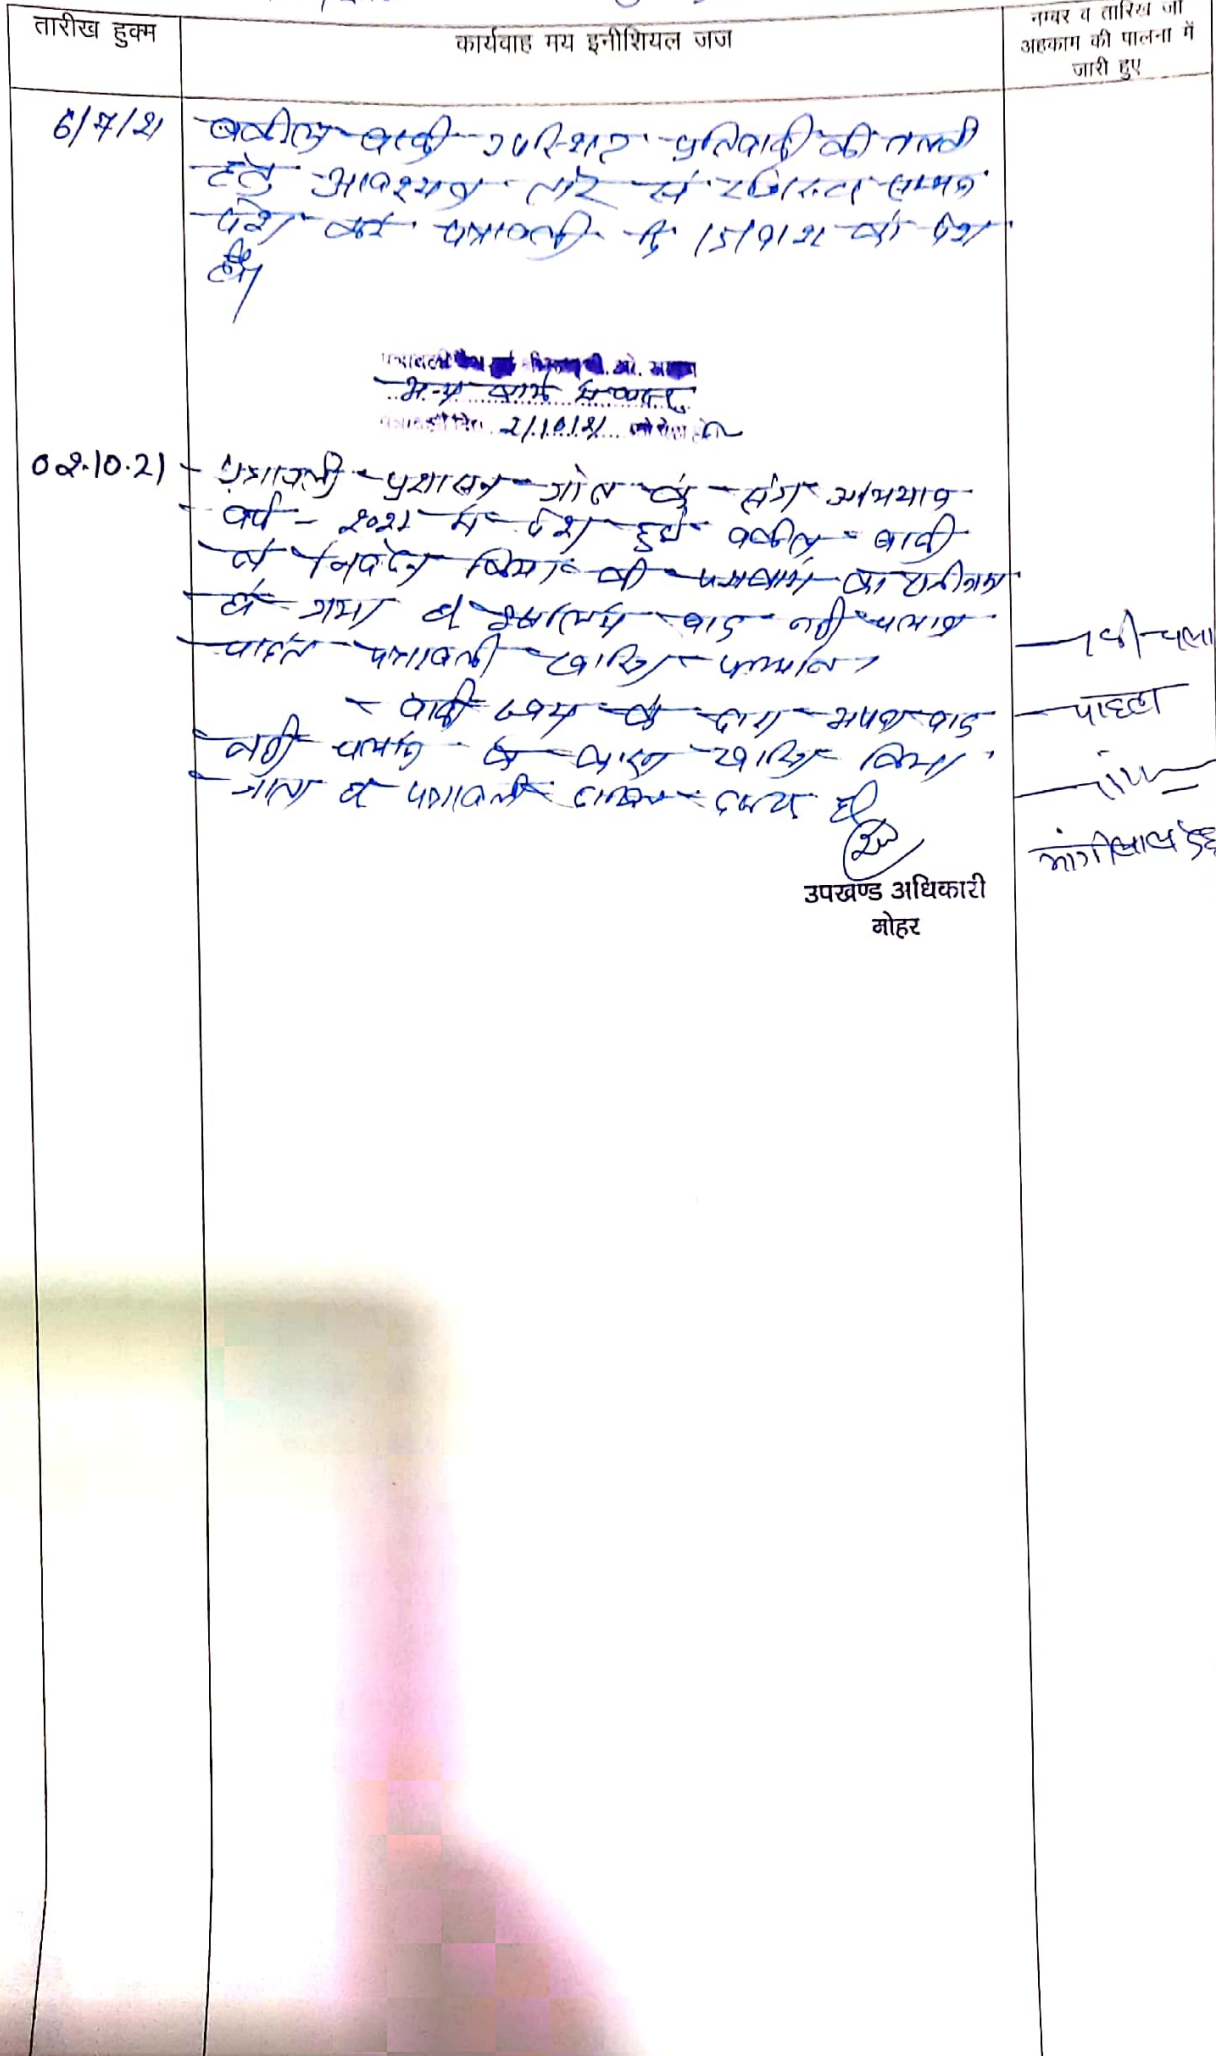 तारीख हुक्म
कार्यवाह मय इनीशियल जज
नम्बर व तारिख जो
अहकाम की पालना में
जारी हुए
6/7/21
वकील वादी उपस्थित प्रतिवादी की तलबी
हेतु आवश्यक तौर से रजिस्टर्ड सम्मन
पेश करे पत्रावली दि 15/9/21 को पेश
हो।
अन्य कार्य में व्यस्त
2/10/21
02.10.21
पत्रावली प्रशासन गांव के संग अभियान
वर्ष - 2021 में पेश हुई वकील वादी
ने निवेदन किया की
गया व वाद नही चलाना
चाहते पत्रावली खारिज
वादी स्वयं के द्वारा अपना वाद
नही चलाने के कारण खारिज किया
जाता है पत्रावली दाखिल दफ्तर हो
नही चला
चाहता
मांगीलाल
उपखण्ड अधिकारी
मोहर